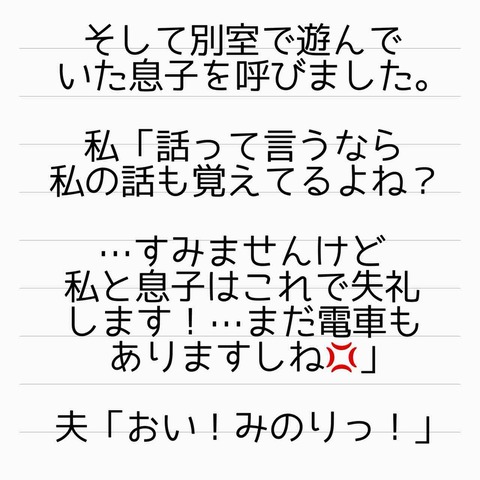 そして別室で遊んで
いた息子を呼びました。
私「話って言うなら
私の話も覚えてるよね？
…すみませんけど
私と息子はこれで失礼
します！…まだ電車も
ありますしね💢」
夫「おい！みのりっ！」